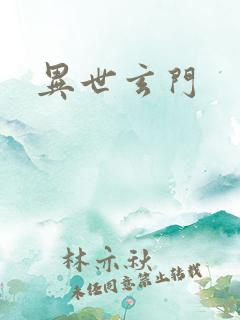 異世玄門
林亦秋
未經同意禁止轉載